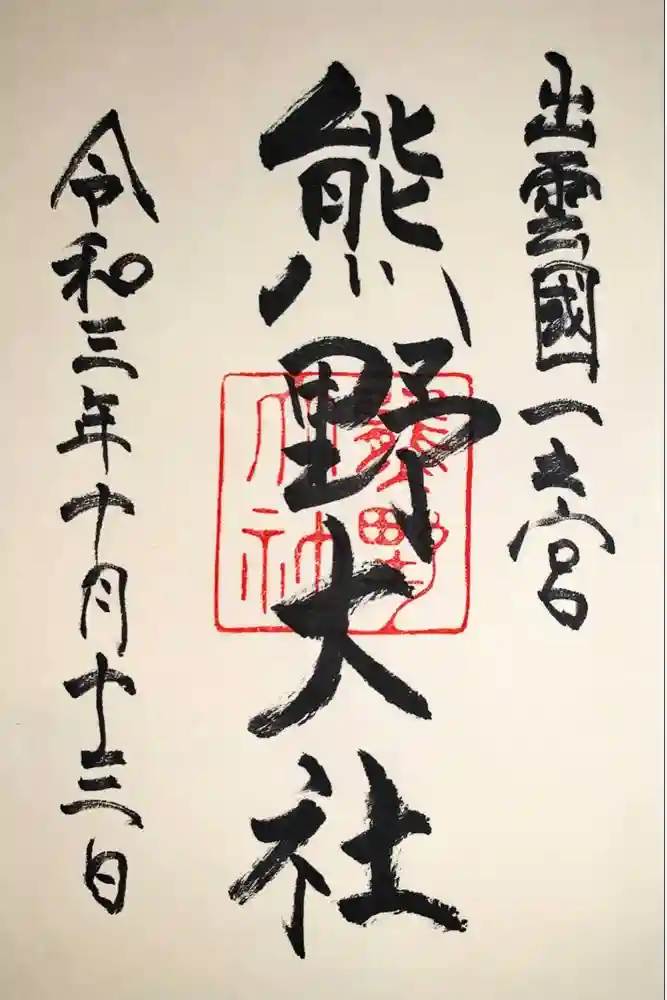 出雲國一之宮
熊野大社
令和三年十月十三日